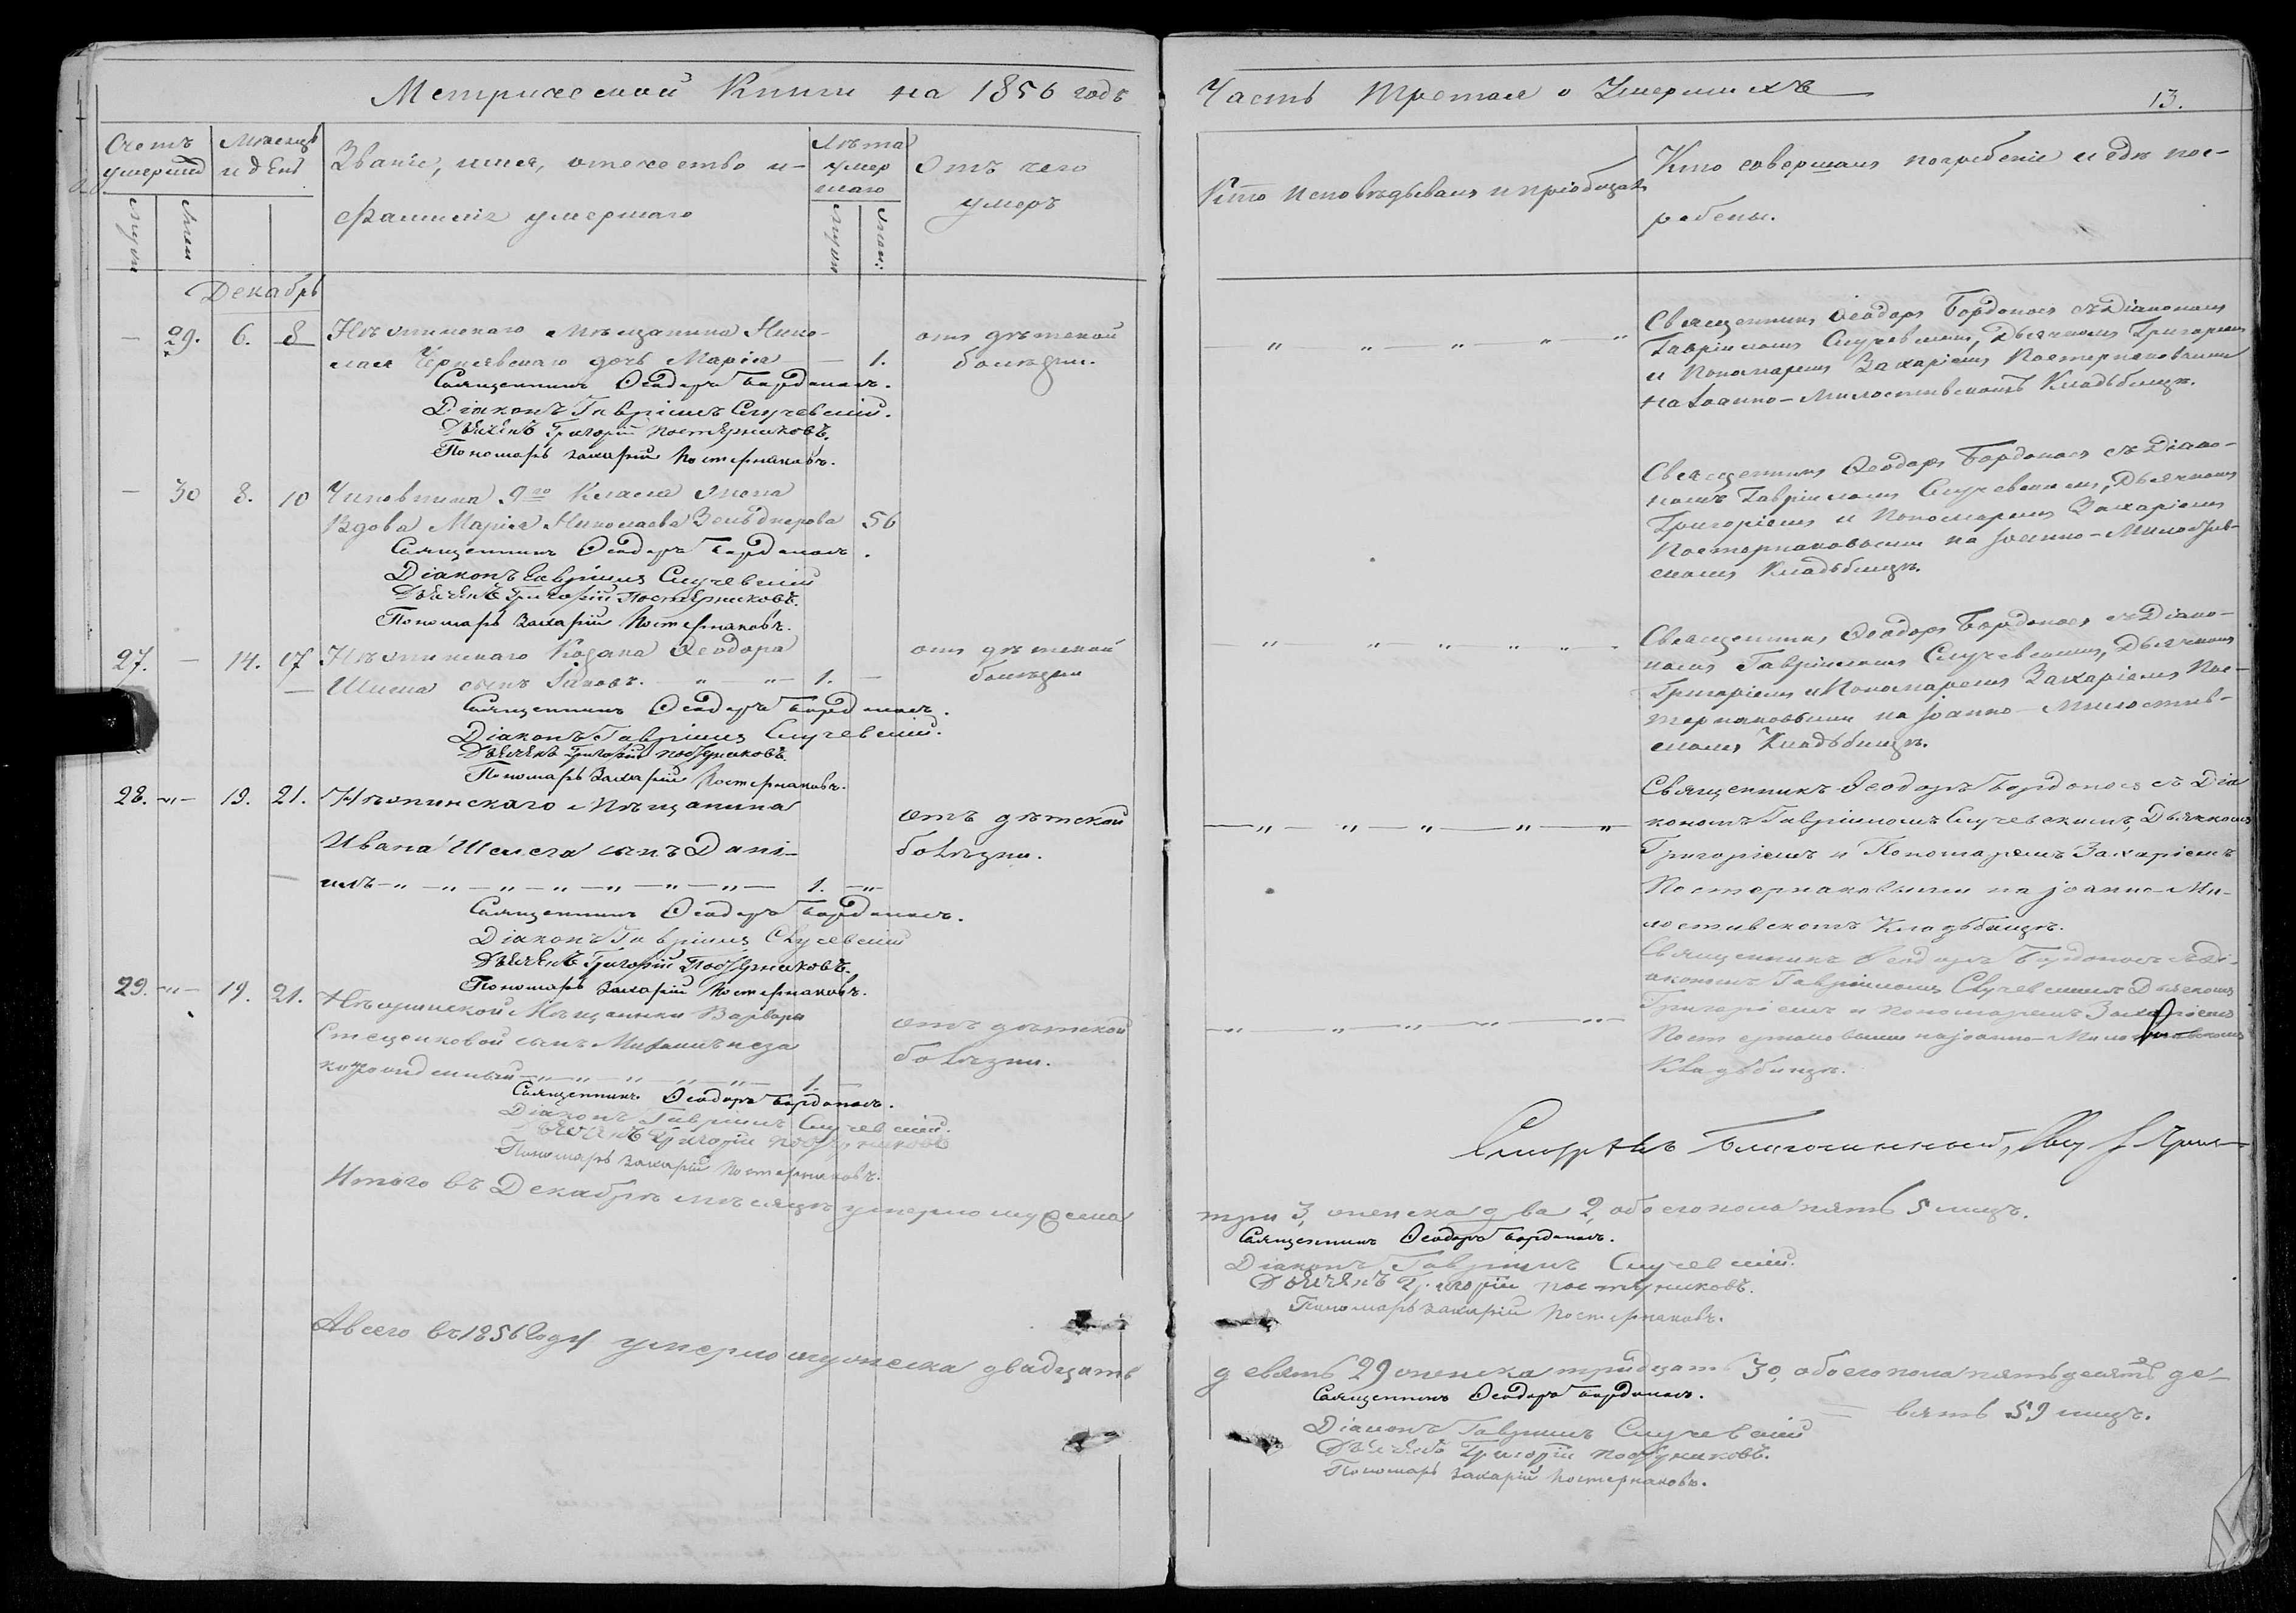 Метрической Книги на 1856 годъ
Часть Третая о Умершихъ
13.
Счетъ умерши
Мѣсяцъ и день
Званіе, имя, отечество и
фамилія умершаго
Лѣта умер шаго
Отъ чего
умеръ
Муж
Жен
Муж
Жен:
Кто исповѣдывалъ и пріобщалъ
Кто совершалъ погребеніе и гдѣ пог-
ребены.
Декабрь
— 29. 6. 8 Нѣжинскаго мѣщанина Нико-
лая Чернявскаго дочь Марія — — 1.
отъ дѣтской
болѣзни.
Священникъ Ѳеодоръ Бордоносъ.
Діаконъ Гавріилъ Случевскій.
Дьячекъ Григорій Постерnaковъ.
Пономарь Захарій Постернаковъ.
Священникъ Ѳеодоръ Бордоносъ съ Діакономъ
Гавріиломъ Случевскимъ, Дьячкомъ Григоріемъ
и Пономаремъ Захаріемъ Постернаковыми
на Іоанно-Милостивскомъ Кладбищѣ.
— 30 8. 10 Чиновника 9го Класса жена
Вдова Марія Николаева 56
Священникъ Ѳеодоръ Бордоносъ.
Діаконъ Гавріилъ Случевскій
Дьячекъ Григорій Постернаковъ.
Пономарь Захарій Постернаковъ.
Священникъ Ѳеодоръ Бордоносъ съ Діако-
номъ Гавріиломъ Случевскимъ, Дьячкомъ
Григоріемъ и Пономаремъ Захаріемъ
Постернаковыми на Іоанно-Милостив-
скомъ Кладбищѣ.
27. — 14. 17 Нѣжинскаго Козака Ѳеодора
сынъ Іаковъ. — „ — „ — 1. —
отъ дѣтской
болѣзни
Священникъ Ѳеодоръ Бордоносъ.
Діаконъ Гавріилъ Случевскій.
Дьячекъ Григорій Постернаковъ.
Пономарь Захарій Постернаковъ.
Священникъ Ѳеодоръ Бордоносъ съ Діако-
номъ Гавріиломъ Случевскимъ, Дьячкомъ
Григоріемъ и Пономаремъ Захаріемъ Пос-
тернаковыми на Іоанно-Милостив-
скомъ Кладбищѣ.
28. — „ — 19. 21. Нѣжинскаго Мѣщанина
Ивана сынъ Дані-
илъ — „ — „ — „ — „ — „ — „ — „ — 1. — „ —
отъ дѣтской
болѣзни.
Священникъ Ѳеодоръ Бордоносъ.
Діаконъ Гавріилъ Случевскій
Дьячекъ Григорій Постернаковъ.
Пономарь Захарій Постернаковъ.
Священникъ Ѳеодоръ Бордоносъ съ Діа
кономъ Гавріиломъ Случевскимъ, Дьячкомъ
Григоріемъ и Пономаремъ Захаріемъ
Постернаковыми на Іоанно-Ми-
лостивскомъ Кладбищѣ.
29. — „ — 19. 21. Нѣжинской Мѣщанки Варвары
Стеценковой сынъ неза
коннорожденный — „ — „ — „ — „ — „ — 1. —
отъ дѣтской
болѣзни.
Священникъ Ѳеодоръ Бордоносъ.
Діаконъ Гавріилъ Случевскій.
Дьячекъ Григорій Постернаковъ
Пономарь Захарій Постернаковъ.
Священникъ Ѳеодоръ Бордоносъ съ Ді-
акономъ Гавріиломъ Случевскимъ Дьячкомъ
Григоріемъ и Пономаремъ Захаріемъ
Постернаковыми на Іоанно-Милостивскомъ
Кладбищѣ.
Смотрѣлъ Благочинный,
Итого въ Декабрѣ мѣсяцѣ умерло мужеска
три 3, женска два 2, обоего пола пять 5 лицъ.
Священникъ Ѳеодоръ Бордоносъ.
Діаконъ Гавріилъ Случевскій.
Дьячекъ Григорій Постернаковъ.
Пономарь Захарій Постернаковъ.
А всего въ 1856 Году умерло мужеска двадцать
девять 29 женска тридцать 30, обоего пола пятьдесятъ де-
вять 59 лицъ.
Священникъ Ѳеодоръ Бордоносъ.
Діаконъ Гавріилъ Случевскій
Дьячекъ Григорій Постернаковъ.
Пономарь Захарій Постернаковъ.